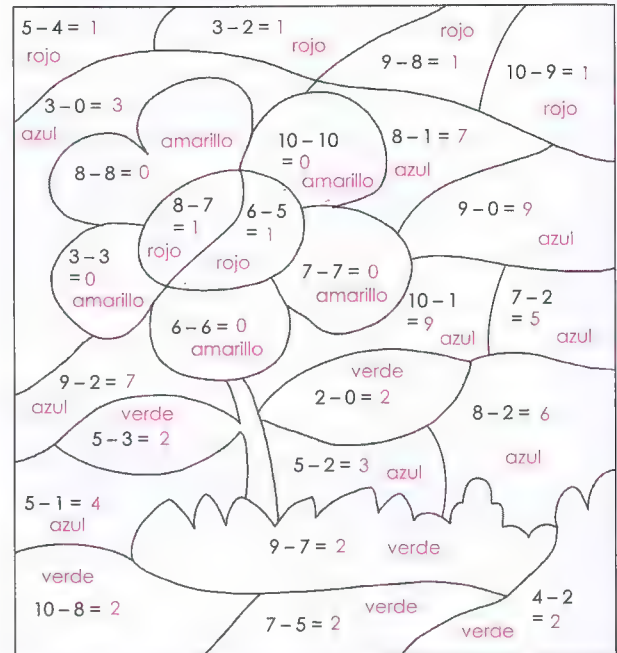 5 – 4 = 1
rojo
3 – 2 = 1
rojo
rojo
9 – 8 = 1
10 – 9 = 1
rojo
3 – 0 = 3
azul
amarillo
8 – 8 = 0
10 – 10
= 0
amarillo
8 – 1 = 7
azul
8 – 7
= 1
rojo
6 – 5
= 1
rojo
9 – 0 = 9
azul
3 – 3
= 0
amarillo
7 – 7 = 0
amarillo
10 – 1
= 9
azul
7 – 2
= 5
azul
6 – 6 = 0
amarillo
9 – 2 = 7
azul
verde
5 – 3 = 2
verde
2 – 0 = 2
8 – 2 = 6
azul
5 – 2 = 3
azul
5 – 1 = 4
azul
9 – 7 = 2
verde
verde
10 – 8 = 2
verde
7 – 5 = 2
4 – 2
= 2
verde